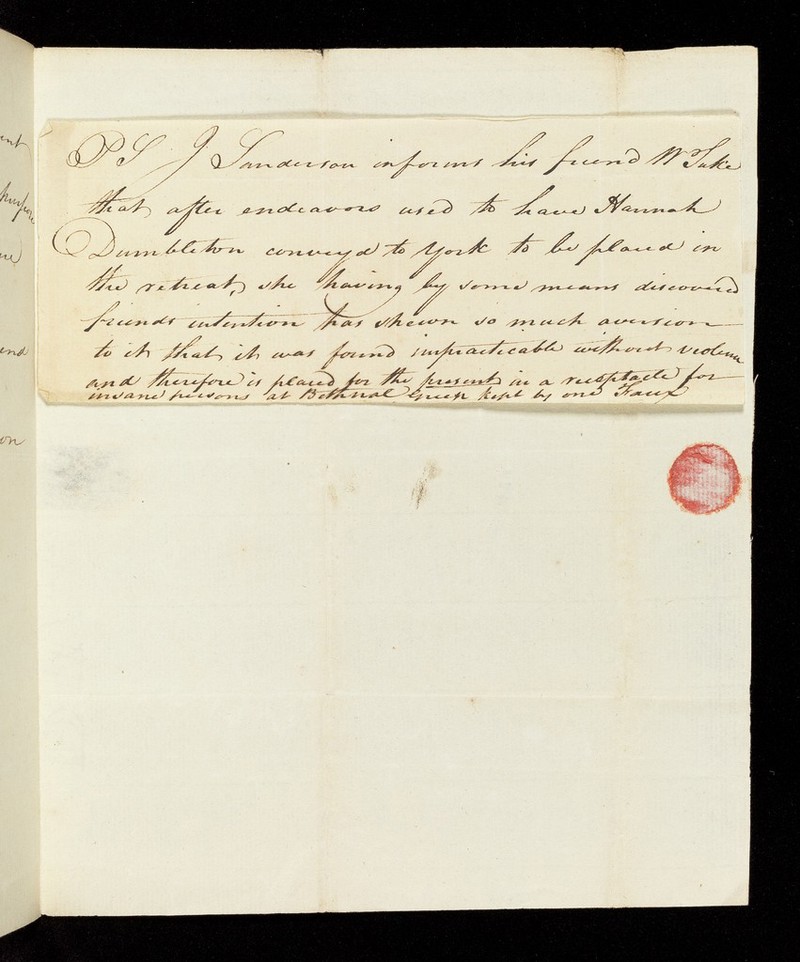 PS J Sanderson informs his friend Wm Tuke
that after endeavors used to have Hannah
Dumbleton convey'd to York to be placed in
the retreat, she having by some means discovered
friends intention has shewn so much aversion
to it that it was found impracticable without violence
and therefore is placed for the present in a receptacle for
insane persons at Bethnal Green kept by one Faux